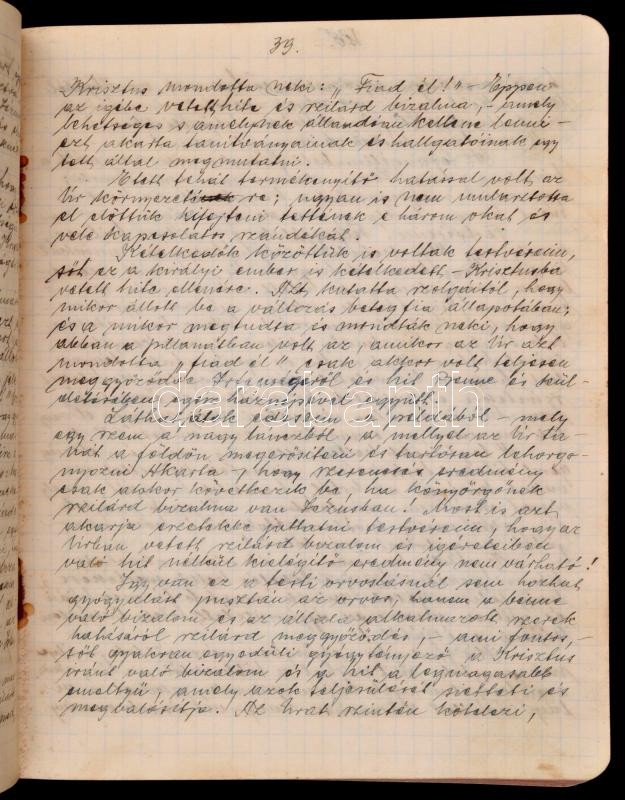 39.
Krisztus mondotta neki: „Fiad él!" – Éppen
az igébe vetett hite és szilárd bizalma, – amely
lehetséges s amelynek állandóan kellene lenni –
ezt akarta tanítványainak és hallgatóinak egy
tett által megmutatni.
Etett tehát termékenyítő hatással volt az
Úr környezetére; ugyan is nem mulasztotta
el előttük kifejteni tettének e három okát és
vele kapcsolatos szándékát.
Kételkedők közöttük is voltak testvéreim,
sőt ez a királyi ember is kételkedett – Krisztusba
vetett hite ellenére. Azt kutatta szolgáitól, hogy
mikor állott be a változás beteg fia állapotában;
és a mikor megtudta és mondták neki, hogy
abban a pillanatban volt az, amikor az Úr azt
mondotta „fiad él" csak akkor volt teljesen
meggyőződve Istenségéről és hitt benne és kül-
detésében egész háznépével együtt.
Láthatjátok ebből a példából – mely
egy szem a nagy láncból, a mellyel az Úr ta-
nát a földön megerősíteni és tartósan lehorgo-
nyozni akarta –, hogy szerencsés eredmény
csak akkor következik be, ha könyörgőnek
szilárd bizalma van Jézusban! Most is azt
akarja eszetekbe juttatni testvéreim, hogy az
Úrban vetett szilárd bizalom és igéreteiben
való hit nélkül kielégítő eredmény nem várható!
Így van ez a testi orvoslásnál sem hozhat
gyógyulást pusztán az orvos, hanem a benne
való bizalom és az általa alkalmazott szerek
hatásáról szilárd meggyőződés, – ami fontos, –
sőt gyakran egyedüli gyógytényező a Krisztus
iránt való bizalom és a hit a legmagasabb
emeltyű, amely azok teljesülését sietteti és
megvalósítja. Az Urat szintén kötelezi,
darabanth.com